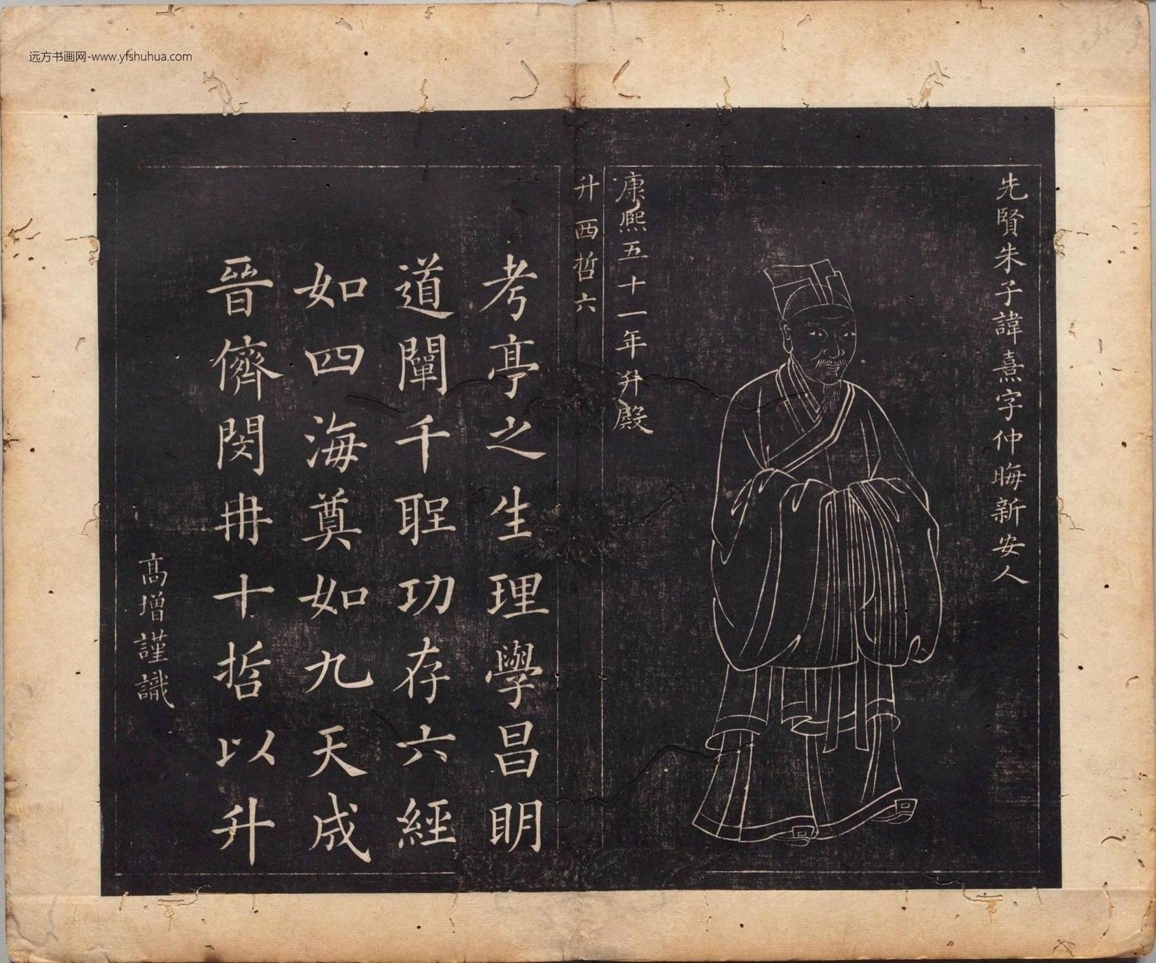 远方书画网-www.yfshuhua.com
先賢朱子諱熹字仲晦新安人
康熙五十一年升殿
升西哲六
考亭之生理學昌明
道闡千聖功存六經
如四海奠如九天成
晉儕閔冉十哲以升
高增謹識